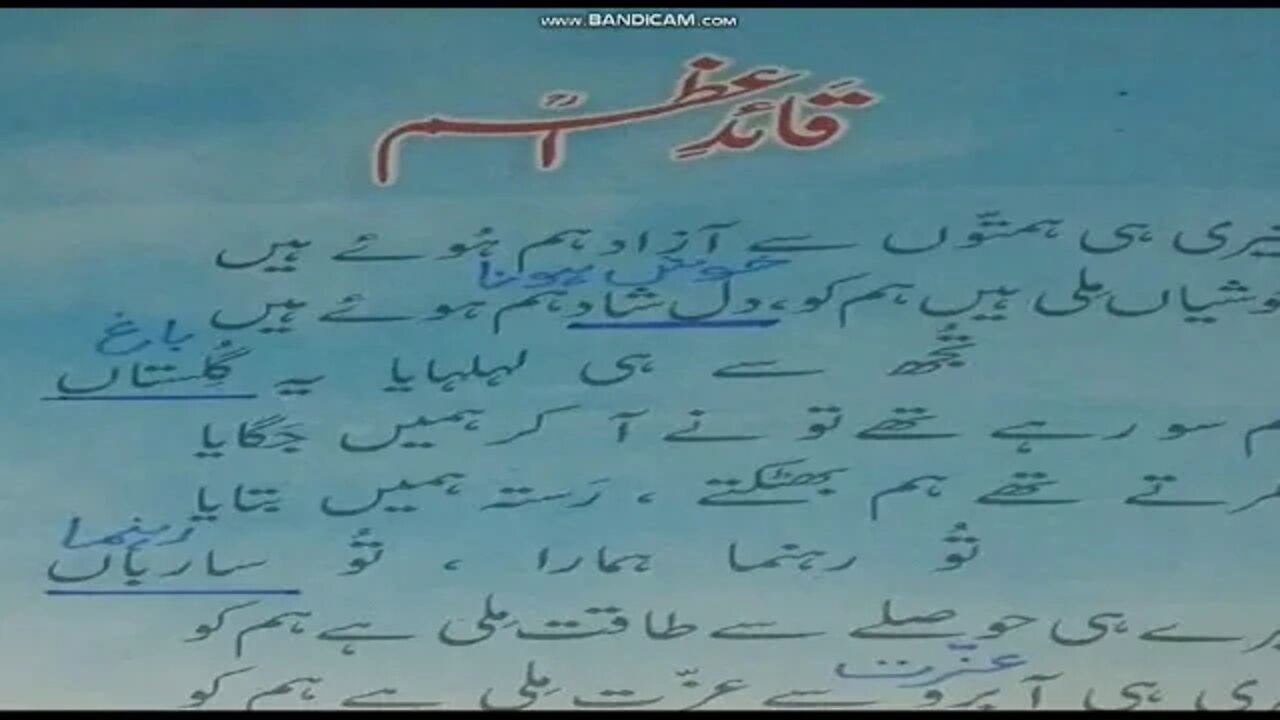 www.BANDICAM.com
قائدِ اعظمؒ
تیری ہی ہمتوں سے آزاد ہم ہُوئے ہیں
خوش ہونا
خوشیاں مِلی ہیں ہم کو، دل شاد ہم ہوئے ہیں
باغ
تُجھ سے ہی لہلہایا یہ گُلستاں
ہم سو رہے تھے تو نے آ کر ہمیں جَگایا
تھے ہم بھٹکتے ، رَستہ ہمیں بتایا
رہنما
تُو رہنما ہمارا ، تُو سارباں
تیرے ہی حوصلے سے طاقت مِلی ہے ہم کو
عزّت
تیری ہی آبرو سے عزّت مِلی ہے ہم کو